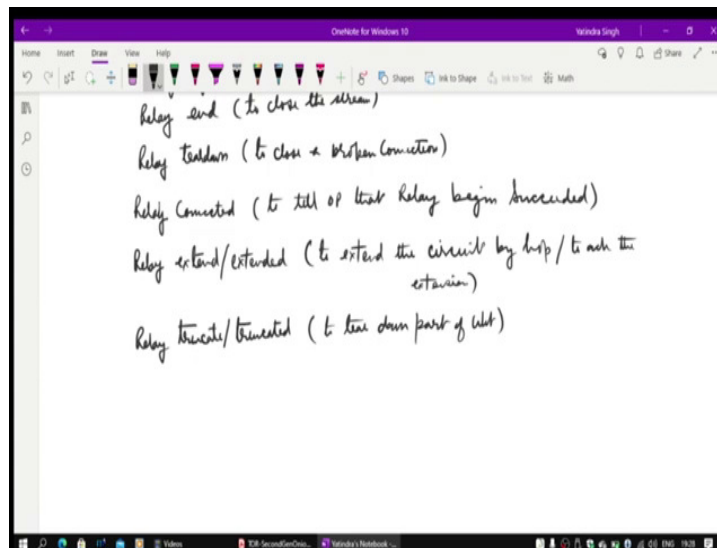 OneNote for Windows 10
Yatindra Singh
Home Insert Draw View Help
Share
Shapes Ink to Shape Ink to Text Math
Relay end (to close the stream)
Relay teardown (to close a broken connection)
Relay Connected (to tell OP that Relay begin Succeeded)
Relay extend/extended (to extend the circuit by hop / to ack the
extension)
Relay truncate/truncated (to tear down part of ckt)
Videos TOR-SecondGenOnio... Yatindra's Notebook -...
ENG 1928